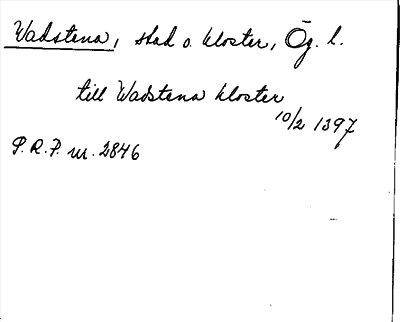 Wadstena, stad o. kloster, Ög. l.
till Wadstena kloster
10/2 1397
P.R.P. nr. 2846